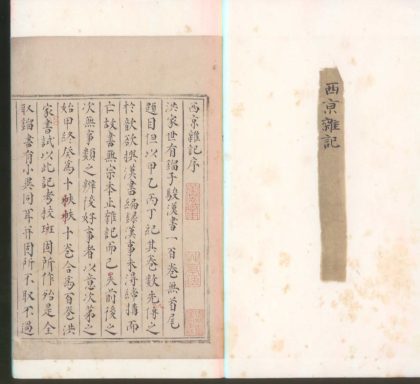 西京雜記
西京雜記序
洪家世有鎦子駿漢書一百卷無首尾
題目但以甲乙丙丁紀其卷數先傳之
於歆欲撰漢書編錄漢事未得締搆而
亡故書無宗本止雜記而已失前後之
次無事類之辨後好事者以意次第之
始甲終癸為十帙帙十卷合為百卷洪
家書試以此記考校班固所作殆是全
取鎦書有小異同耳并固所不取不過